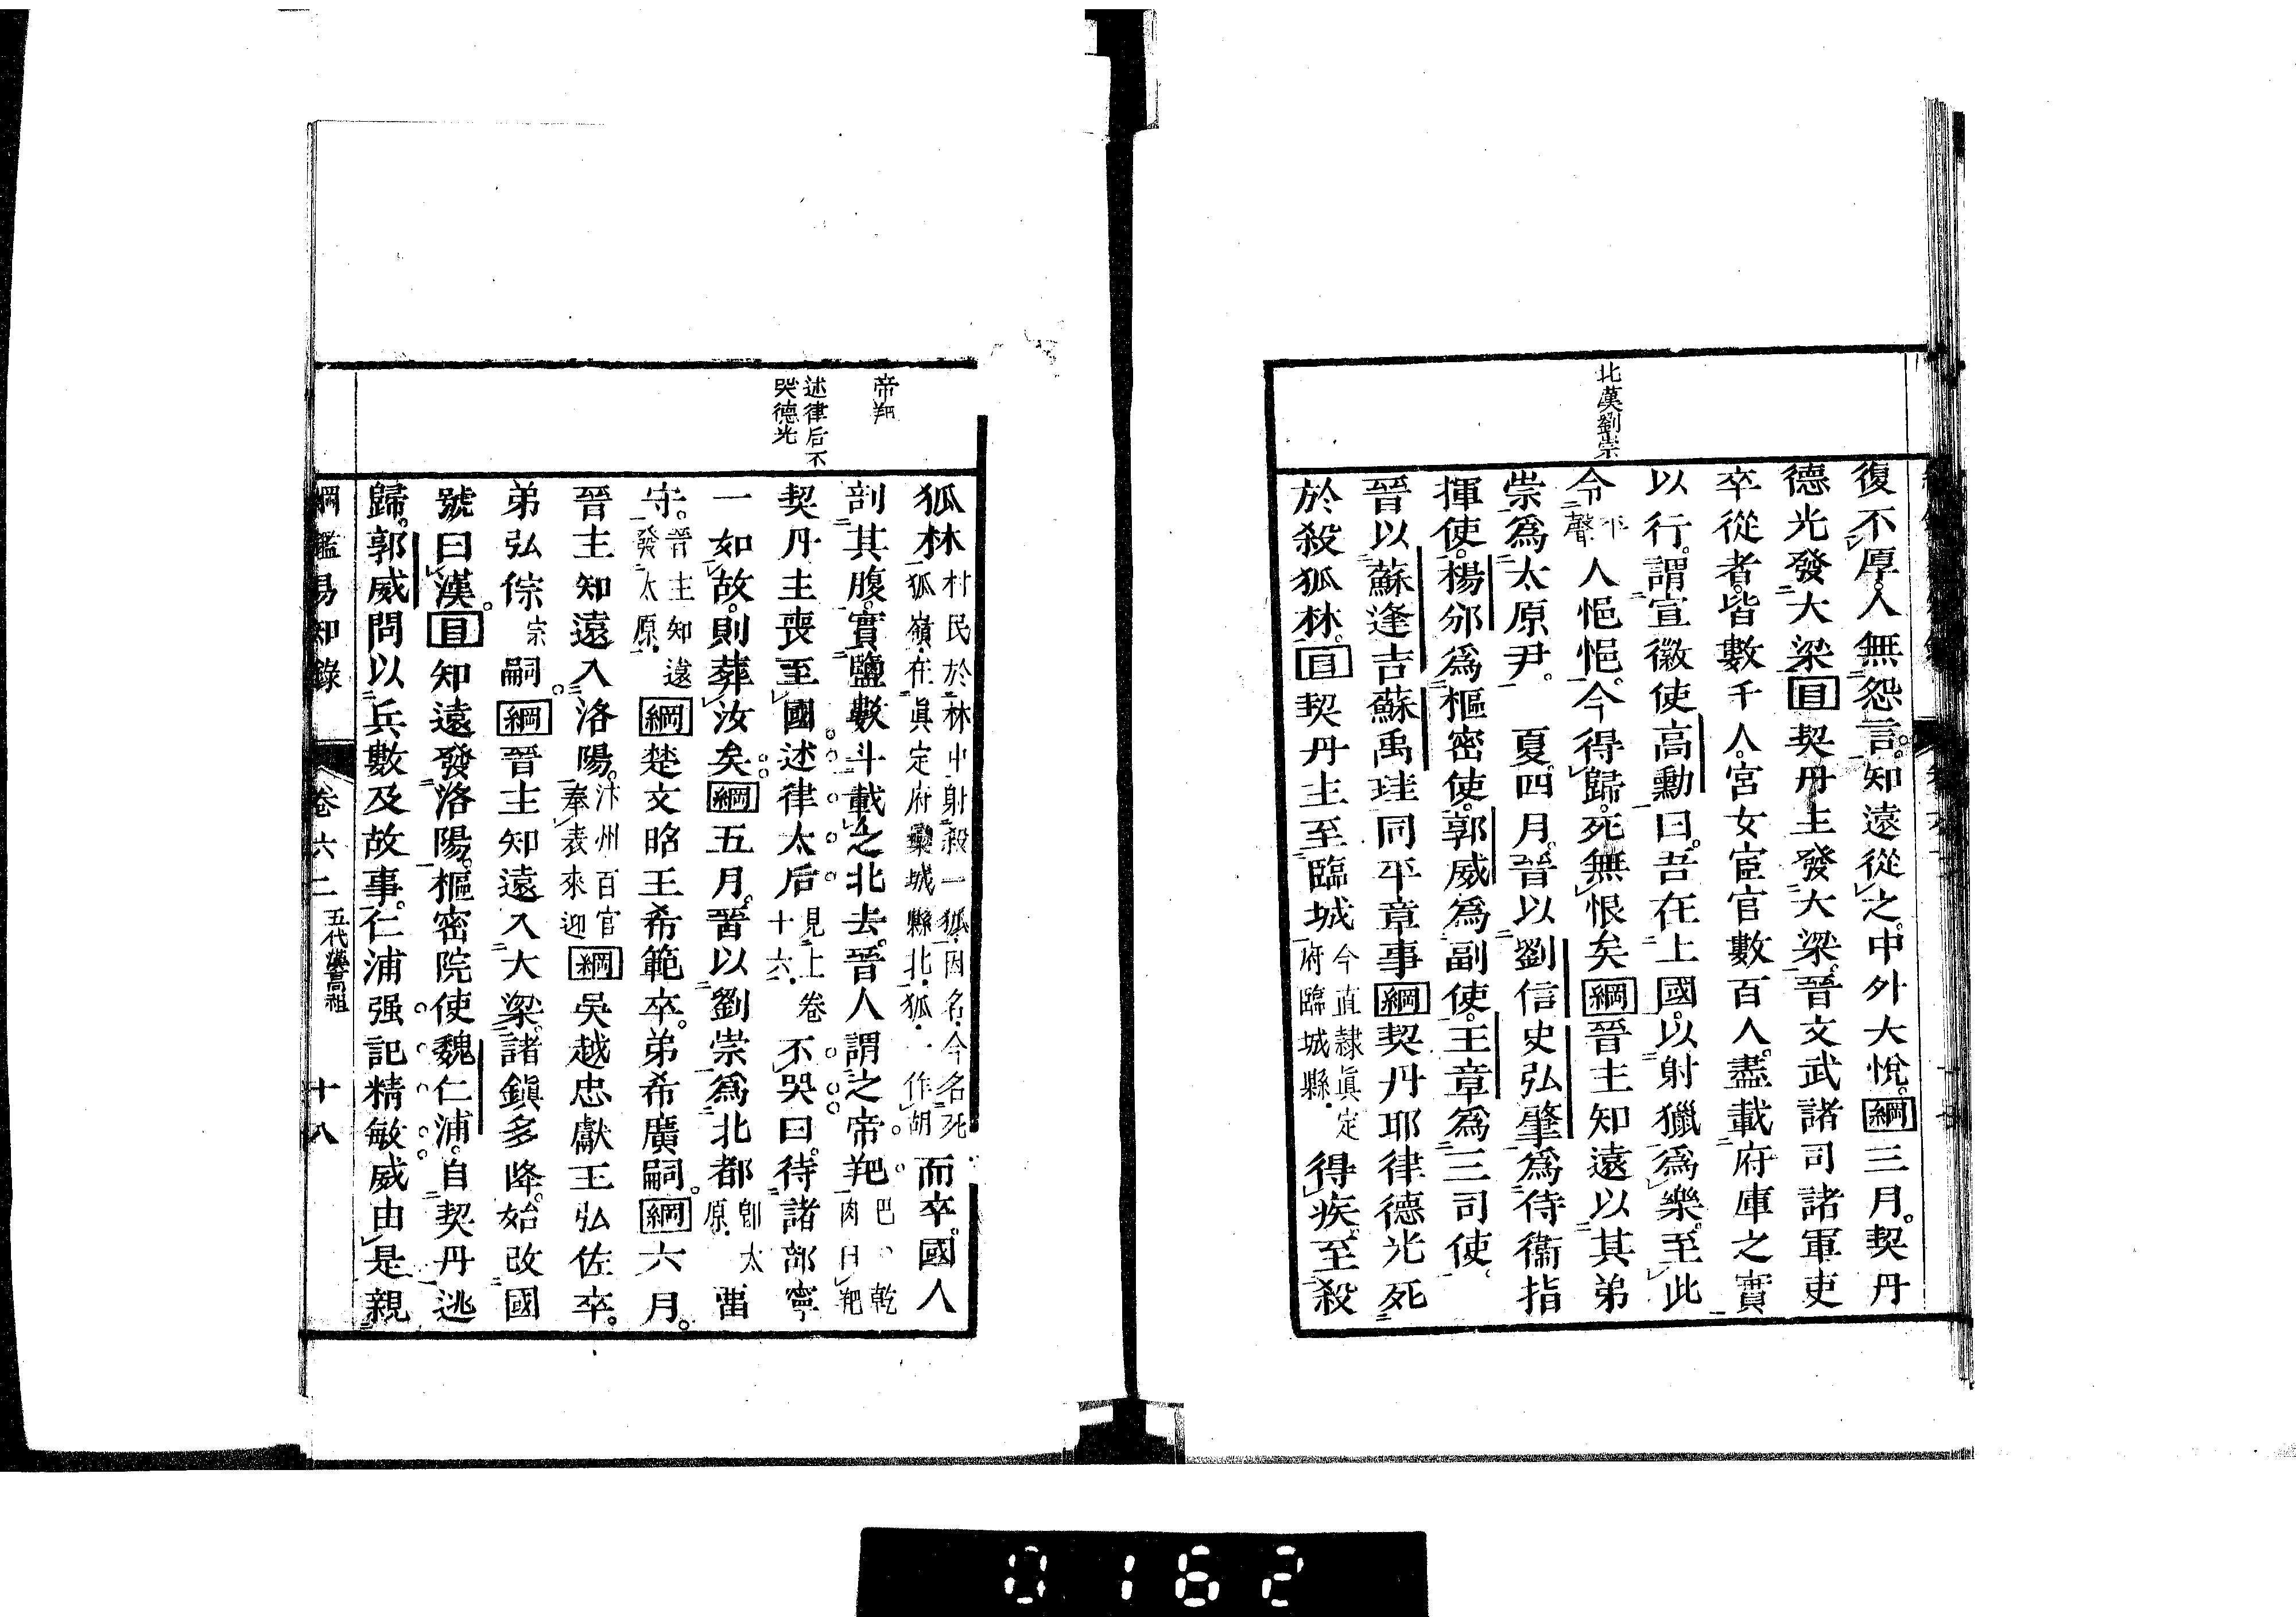 北漢劉崇
復不厚。人無怨言。知遠從之。中外大悅。綱三月。契丹
德光發大梁目契丹主發大梁。晉文武諸司諸軍吏
卒從者。皆數千人。宮女宦官數百人。盡載府庫之實
以行。謂宣徽使高勳曰。吾在上國。以射獵爲樂。至此
令平聲人悒悒。今得歸。死無恨矣綱晉主知遠以其弟
崇爲太原尹。 夏。四月。晉以劉信史弘肇爲侍衞指
揮使。楊邠爲樞密使。郭威爲副使。王章爲三司使。
晉以蘇逢吉蘇禹珪同平章事綱契丹耶律德光死
於殺狐林。目契丹主至臨城今直隸眞定府臨城縣。得疾。至殺
帝羓
述律后不
哭德光
狐林村民於林中射殺一狐。因名。今名死狐嶺。在眞定府欒城縣北。狐。一作胡而卒。國人
剖其腹。實鹽數斗。載之北去。晉人謂之帝羓巴。乾肉曰羓
契丹主喪至國。述律太后見上卷十六。不哭曰。待諸部寧
一如故。則葬汝矣綱五月。晉以劉崇爲北都卽太原。畱
守。晉主知遠發太原。綱楚文昭王希範卒。弟希廣嗣。綱六月。
晉主知遠入洛陽。汴州百官奉表來迎綱吳越忠獻王弘佐卒。
弟弘倧宗嗣。綱晉主知遠入大梁。諸鎭多降。始改國
號曰漢。目知遠發洛陽。樞密院使魏仁浦。自契丹逃
歸。郭威問以兵數及故事。仁浦强記精敏。威由是親
綱鑑易知錄 卷六二 五代漢高祖 十八
0162